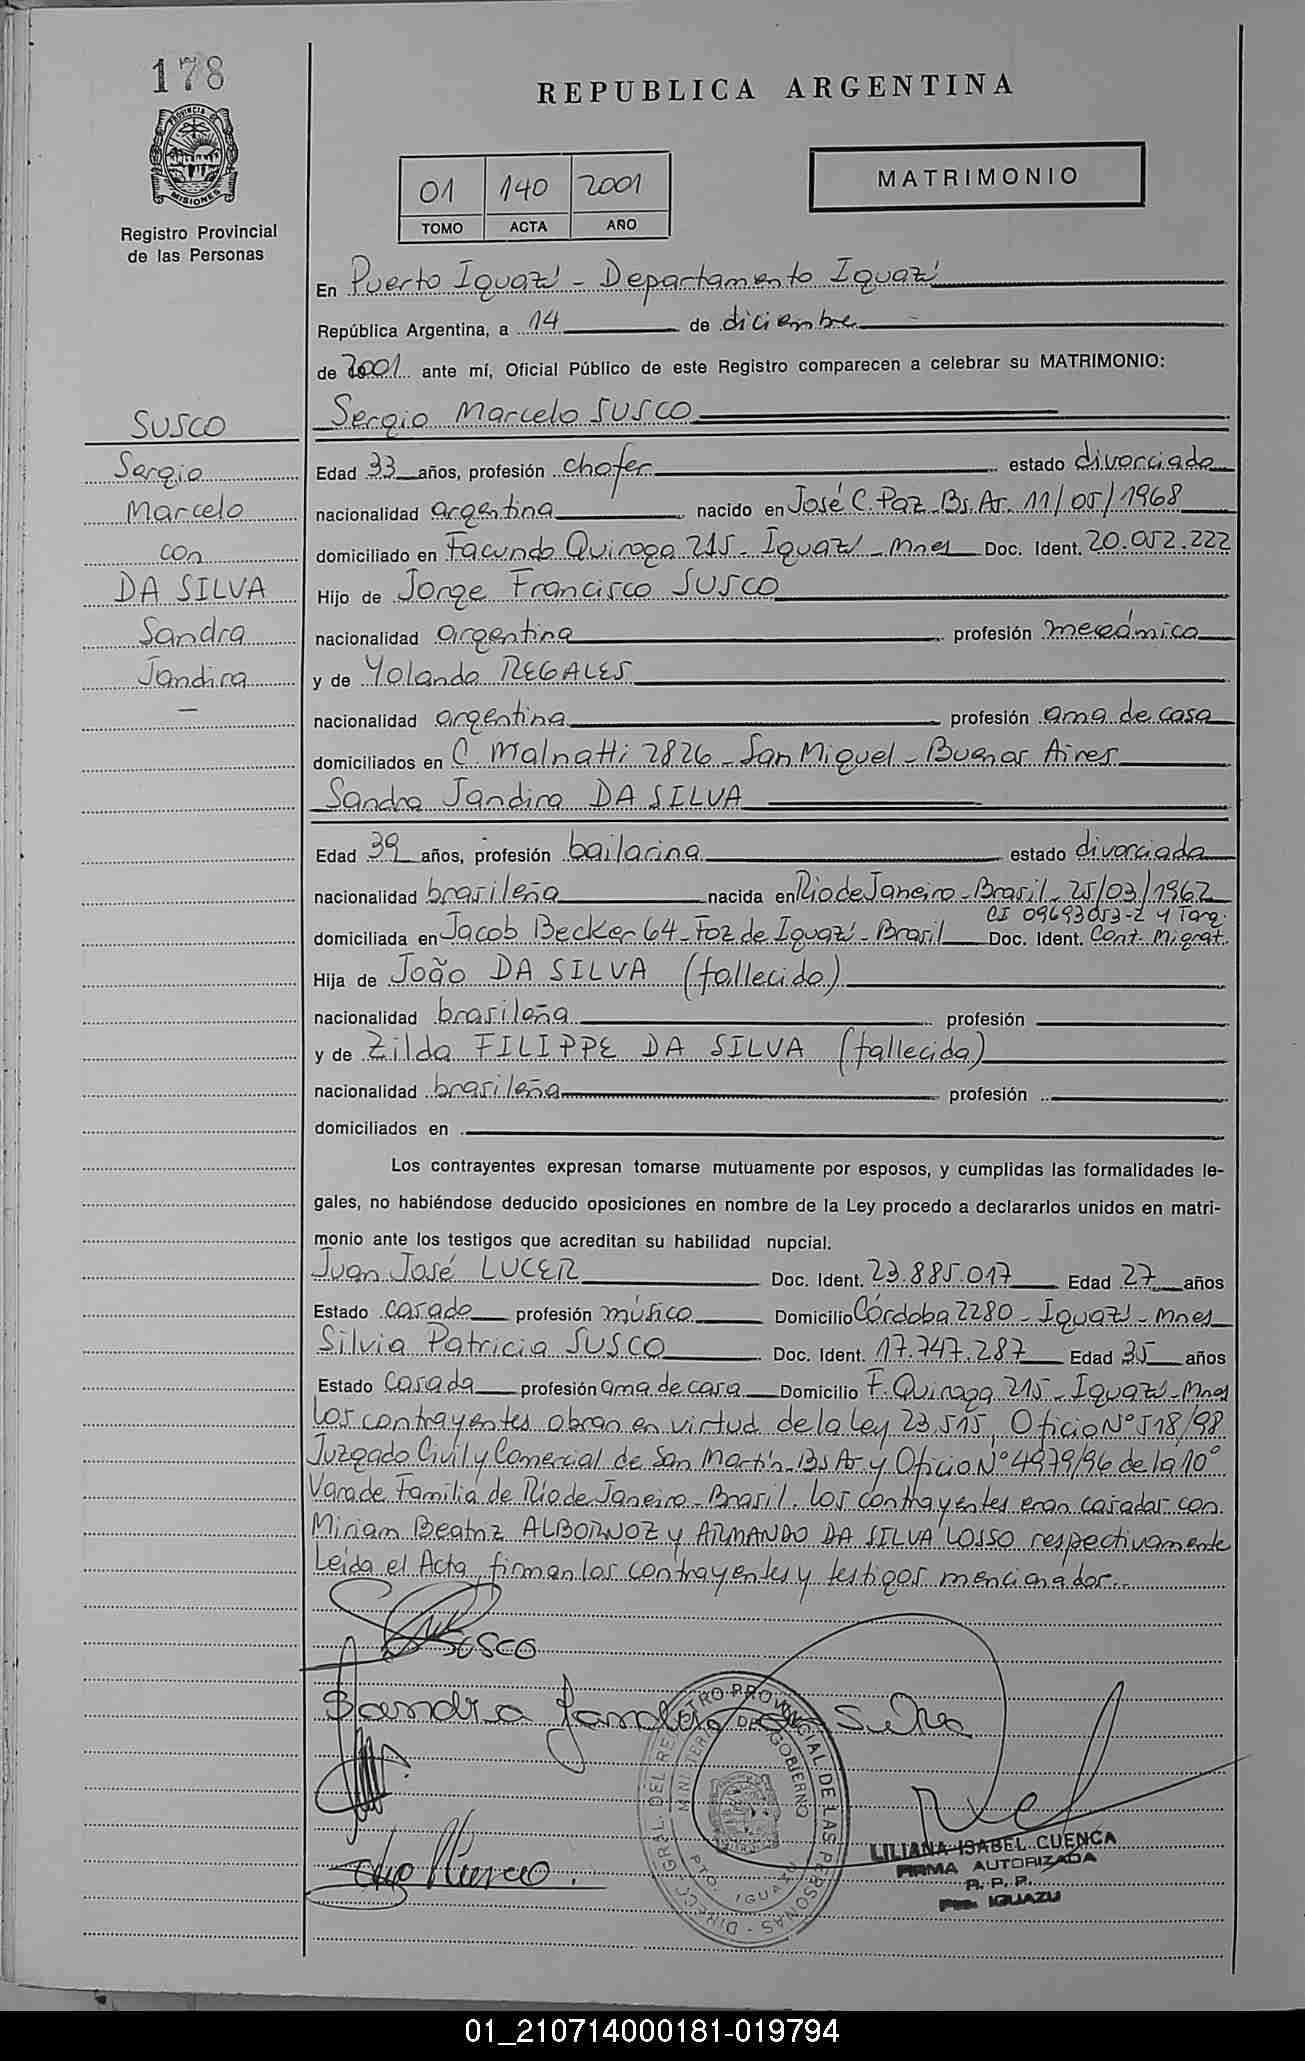 178
PROVINCIA DE
MISIONES
Registro Provincial
de las Personas
REPUBLICA ARGENTINA
01 140 2001
TOMO ACTA AÑO
MATRIMONIO
En Puerto Iguazú - Departamento Iguazú
República Argentina, a 14 de diciembre
de 2001 ante mí, Oficial Público de este Registro comparecen a celebrar su MATRIMONIO:
SUSCO
Sergio
Marcelo
con
DA SILVA
Sandra
Jandira
Sergio Marcelo SUSCO
Edad 33 años, profesión chofer estado divorciado
nacionalidad argentina nacido en José C. Paz - Bs. As. 11/05/1968
domiciliado en Facundo Quiroga 215 - Iguazú - Mnes Doc. Ident. 20.052.222
Hijo de Jorge Francisco SUSCO
nacionalidad argentina profesión mecánico
y de Yolanda REGALES
nacionalidad argentina profesión ama de casa
domiciliados en C. Malnatti 2826 - San Miguel - Buenos Aires
Sandra Jandira DA SILVA
Edad 39 años, profesión bailarina estado divorciada
nacionalidad brasileña nacida en Rio de Janeiro - Brasil - 25/03/1962
CI 09693053-2 y Tarj.
domiciliada en Jacob Becker 64 - Foz de Iguazú - Brasil Doc. Ident. Cont. Migrat.
Hija de João DA SILVA (fallecido)
nacionalidad brasileña profesión
y de Zilda FILIPPE DA SILVA (fallecida)
nacionalidad brasileña profesión
domiciliados en
Los contrayentes expresan tomarse mutuamente por esposos, y cumplidas las formalidades le-
gales, no habiéndose deducido oposiciones en nombre de la Ley procedo a declararlos unidos en matri-
monio ante los testigos que acreditan su habilidad nupcial.
Juan José LUCER Doc. Ident. 23.885.017 Edad 27 años
Estado casado profesión músico Domicilio Córdoba 2280 - Iguazú - Mnes
Silvia Patricia SUSCO Doc. Ident. 17.747.287 Edad 35 años
Estado casada profesión ama de casa Domicilio F. Quiroga 215 - Iguazú - Mnes
Los contrayentes obran en virtud de la Ley 23.515, Oficio Nº 518/98
Juzgado Civil y Comercial de San Martín - Bs As y Oficio Nº 4979/96 de la 10º
Vara de Familia de Río de Janeiro - Brasil. Los contrayentes eran casados con
Miriam Beatriz ALBORNOZ y ARMANDO DA SILVA LOSSO respectivamente
Leída el Acta, firman los contrayentes y testigos mencionados.-
SUSCO
Sandra Jandira da Silva
DIRECC. GRAL. DEL REGISTRO PROVINCIAL DE LAS PERSONAS
MINISTERIO DE GOBIERNO
PTO. IGUAZU
LILIANA ISABEL CUENCA
FIRMA AUTORIZADA
R. P. P.
Pto. IGUAZU
01_210714000181-019794